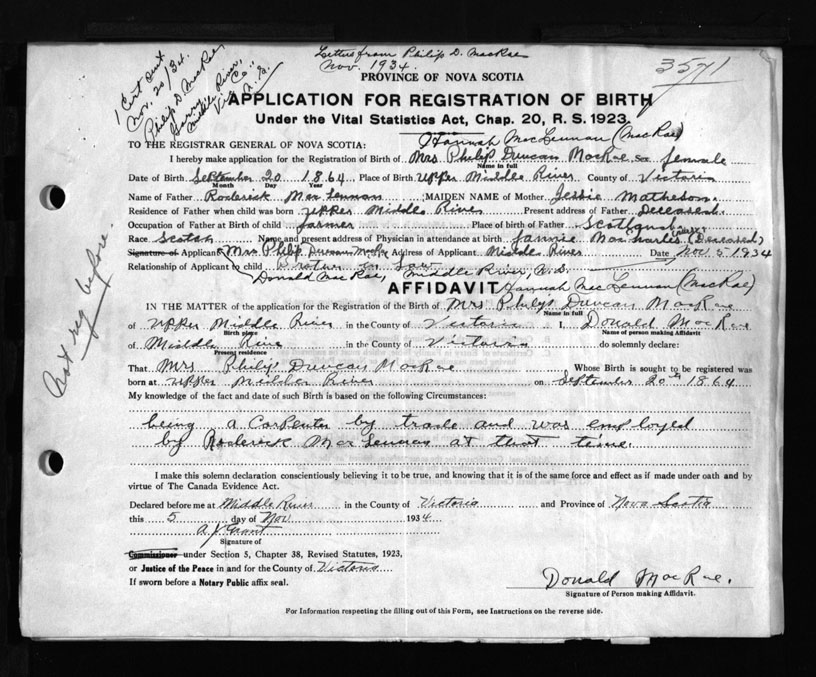 Letter from Philip D. MacRae
Nov. 1934.
3571
1 Cert sent
Nov. 20/34.
Philip D. MacRae
Middle River,
Vic. Co.,
N.S.
PROVINCE OF NOVA SCOTIA
APPLICATION FOR REGISTRATION OF BIRTH
Under the Vital Statistics Act, Chap. 20, R. S. 1923.
Hannah MacLennan (MacRae)
TO THE REGISTRAR GENERAL OF NOVA SCOTIA:
I hereby make application for the Registration of Birth of Mrs Philip Duncan MacRae Sex female
Name in full
Date of Birth September 20 1864 Place of Birth Upper Middle River County of Victoria
Month Day Year
Name of Father Roderick MacLennan MAIDEN NAME of Mother Jessie Matheson.
Residence of Father when child was born Upper Middle River Present address of Father Deceased.
Occupation of Father at Birth of child farmer Place of birth of Father Scotland
Race Scotch Name and present address of Physician in attendance at birth (Deceased)
Signature of Applicant Mrs Philip Duncan MacRae Address of Applicant Middle River Date Nov 5 1934
Relationship of Applicant to child Brother in Law
Donald MacRae, Middle River, N.S.
AFFIDAVIT Hannah MacLennan (MacRae)
IN THE MATTER of the application for the Registration of the Birth of Mrs Philip Duncan MacRae
Name in full
of Upper Middle River in the County of Victoria I, Donald MacRae
Birth place Name of person making Affidavit
of Middle River in the County of Victoria do solemnly declare:
Present residence
That Mrs Philip Duncan MacRae Whose Birth is sought to be registered was
born at Upper Middle River on September 20th 1864
My knowledge of the fact and date of such Birth is based on the following Circumstances:
being a Carpenter by trade and was employed
by Roderick MacLennan at that time.
I make this solemn declaration conscientiously believing it to be true, and knowing that it is of the same force and effect as if made under oath and by
virtue of The Canada Evidence Act.
Declared before me at Middle River in the County of Victoria and Province of Nova Scotia
this 5 day of Nov 1934
A J Grant
Signature of
Commissioner under Section 5, Chapter 38, Revised Statutes, 1923,
or Justice of the Peace in and for the County of Victoria
If sworn before a Notary Public affix seal.
Donald MacRae.
Signature of Person making Affidavit.
For Information respecting the filling out of this Form, see Instructions on the reverse side.
Not reg before.